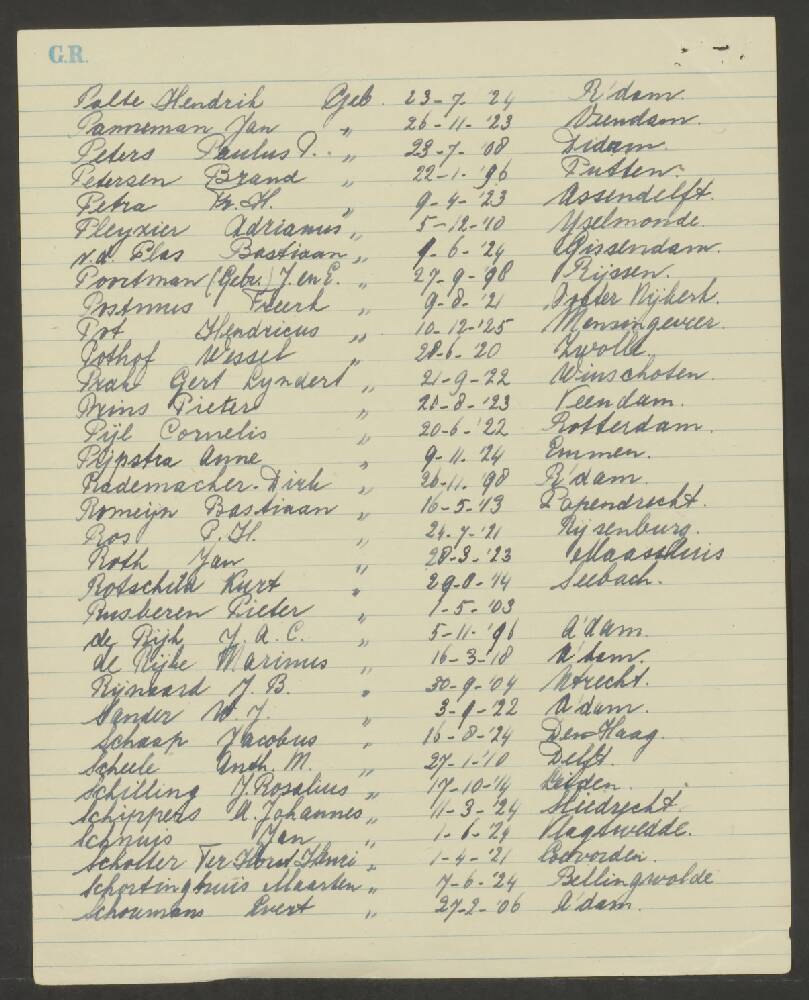 G.R.
Palte Hendrik Geb. 23-7-'24 R'dam.
Panneman Jan " 26-11-'23 Veendam.
Peters Paulus P. " 23-7-'08 Didam
Petersen Brand " 22-1-'96 Putten.
Petra Fr. H. " 9-4-'23 Assendelft.
Pleyzier Adrianus " 5-12-'10 Yselmonde.
v.d. Plas Bastiaan " 1-6-'24 Gissendam.
Poortman (Gebr.) J. en E. " 27-9-'98 Rijssen.
Postmus Freerk " 9-8-'21 Nijkerk.
Pot Hendricus " 10-12-'25 Mensingeweer.
Pothof Wessel " 28-6-'20 Zwolle.
Prak Gert Lyndert " 21-9-'22 Winschoten.
Prins Pieter " 20-8-'23 Veendam.
Pijl Cornelis " 20-6-'22 Rotterdam.
Pijpstra Anne " 9-11-'24 Emmen.
Rademacher-Dirk " 26-11-'98 R'dam.
Romeijn Bastiaan " 16-5-'13 Papendrecht.
Ros P. H. " 24-7-'21 Rijsenburg.
Roth Jan " 28-3-'23 Maassluis
Rotschild Kurt " 29-8-'14 Seebach.
Rusberen Pieter " 1-5-'03
de Rijk J. A. C. " 5-11-'96 A'dam.
de Rijke Marinus " 16-3-'18 A'dam.
Rijnaard J. B. " 30-9-'04 Utrecht.
Sander W. J. " 3-9-'22 A'dam.
Schaap Jacobus " 16-8-'24 Den Haag.
Scheele Anth. M. " 27-1-'10 Delft.
Schilling J. Rosalius " 17-10-'14 Leiden.
Schippers A. Johannes " 11-3-'24 Sliedrecht.
Schnuis Jan " 1-6-'24 Vlagtwedde.
Scholter Ter Horst Henri " 1-4-'21 Coevorden.
Schortinghuis Maarten " 7-6-'24 Bellingwolde
Schoumans Evert " 27-2-'06 A'dam.